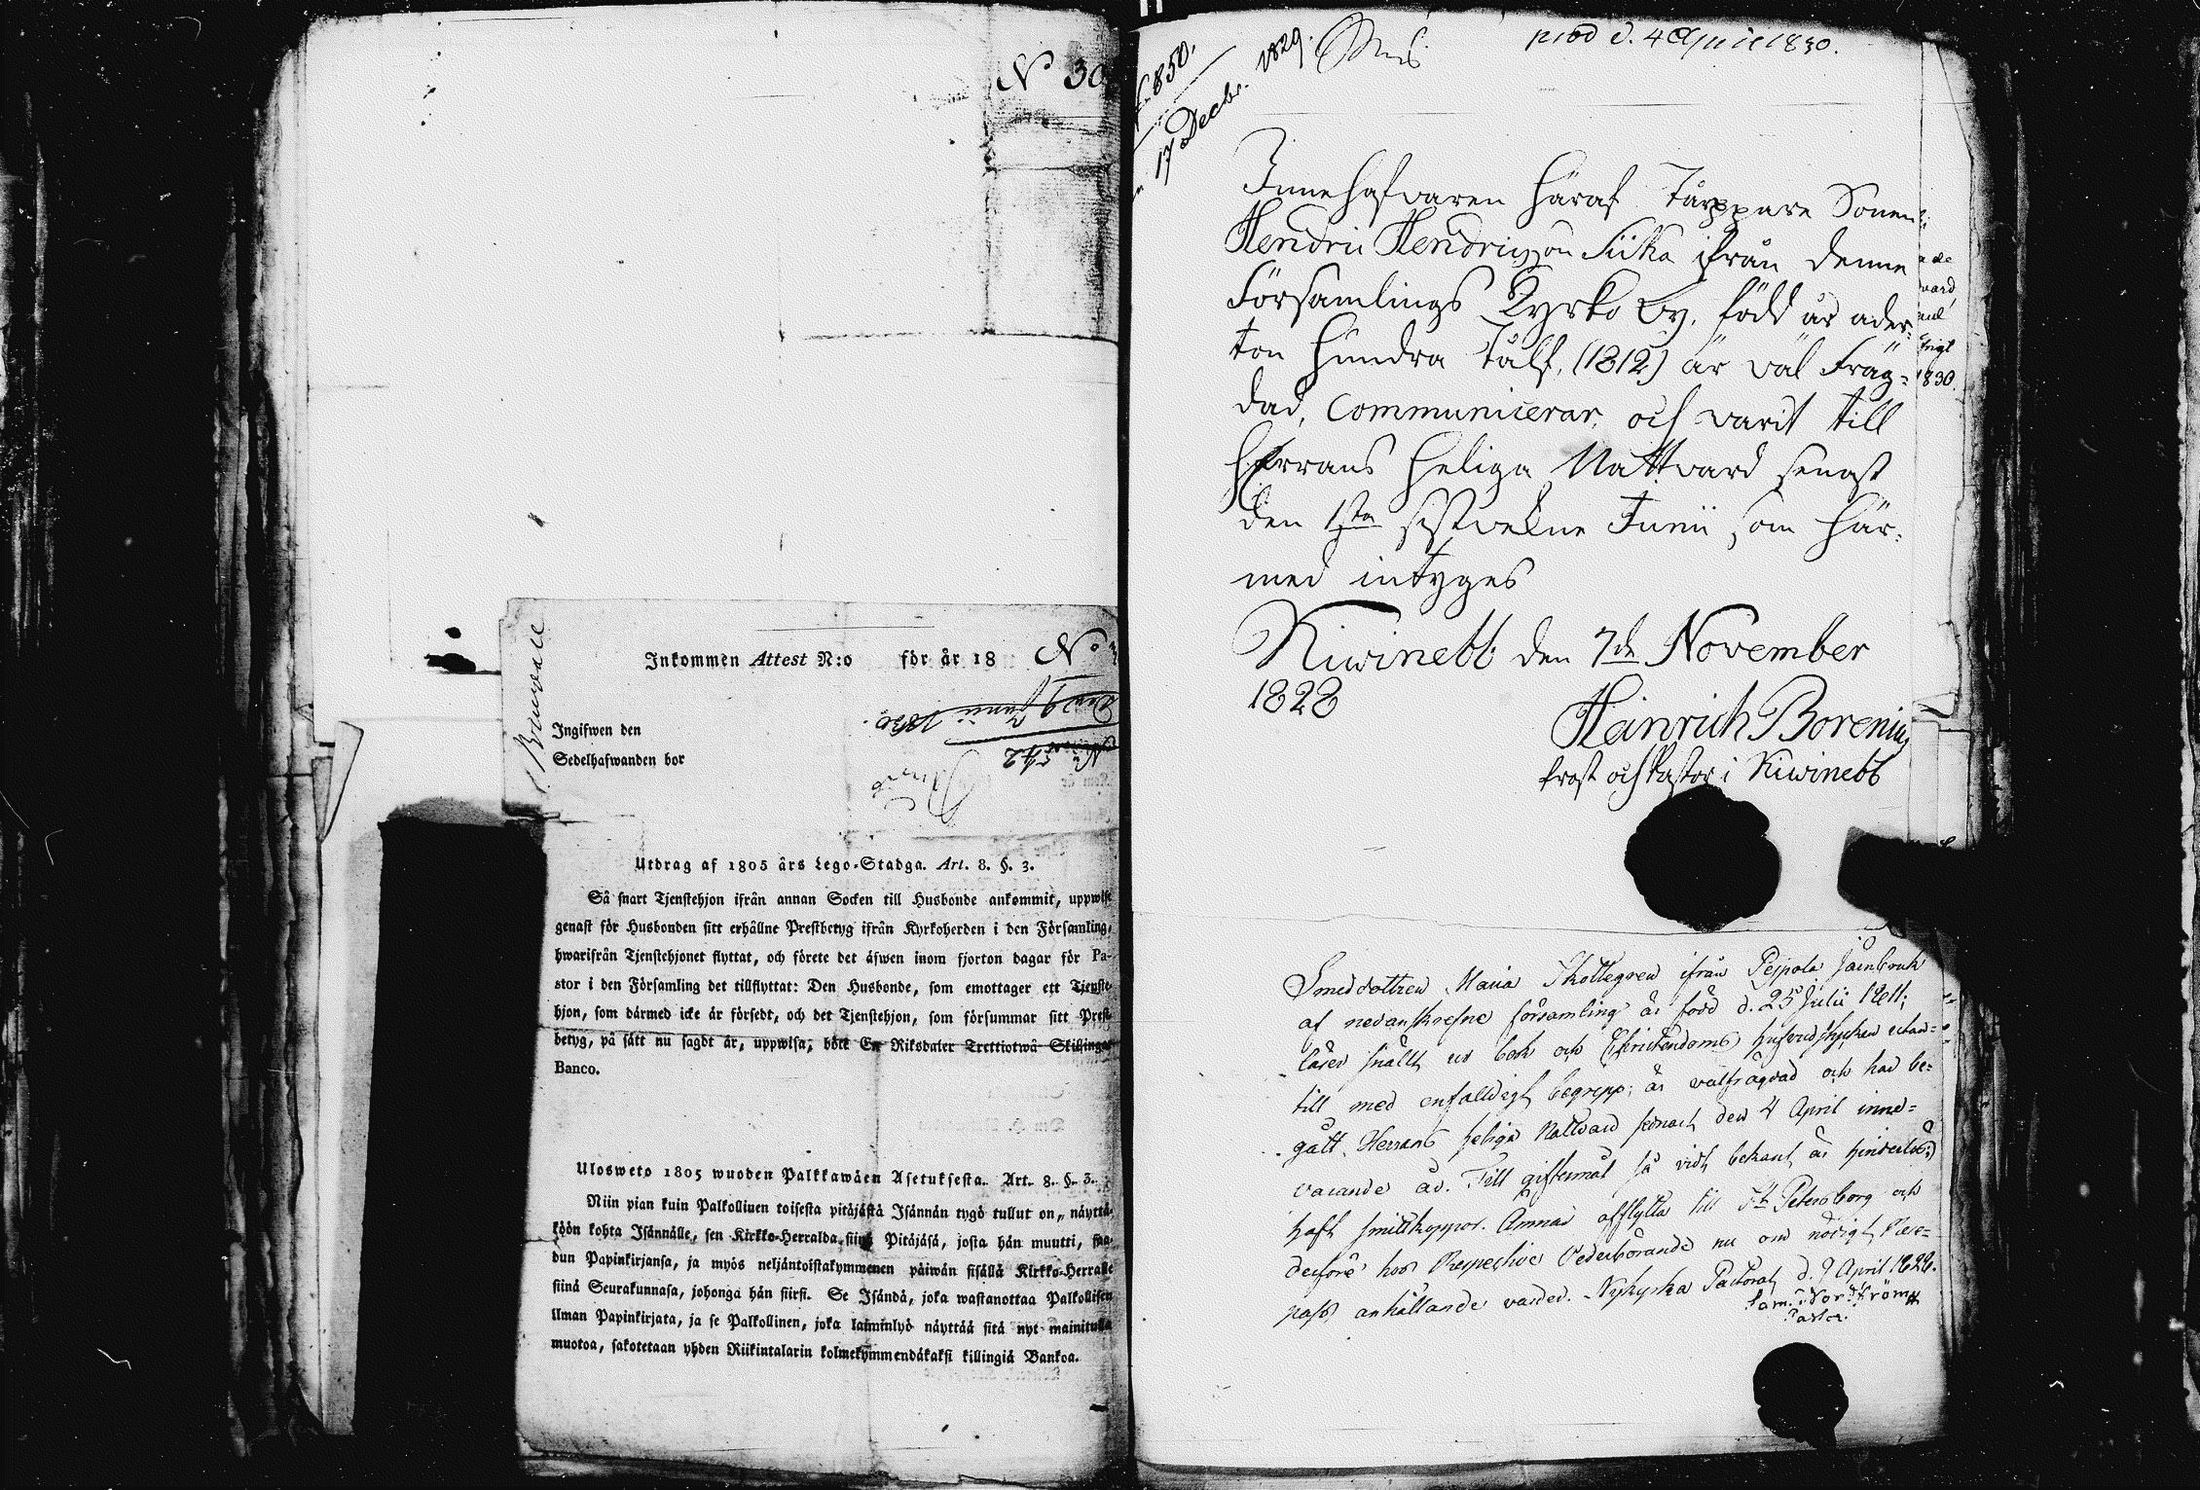 N° 30
Brunvall
Inkommen Attest N:o för år 18
N°
Ingifwen den
Sedelhafwanden bor
den 9 Junii 1830.
N° 542
Utdrag af 1805 års Lego-Stadga. Art. 8. §. 3.
Så snart Tjenstehjon ifrån annan Socken till Husbonde ankommit, uppwise
genast för Husbonden sitt erhållne Prestbetyg ifrån Kyrkoherden i den Församling,
hwarifrån Tjenstehjonet flyttat, och förete det äfwen inom fjorton dagar för Pa-
stor i den Församling det tillflyttat: Den Husbonde, som emottager ett Tjenste-
hjon, som därmed icke är försedt, och det Tjenstehjon, som försummar sitt Prest-
betyg, på sätt nu sagdt är, uppwisa, böte En Riksdaler Trettiotwå Skillingar
Banco.
Ulosweto 1805 wuoden Palkkawäen Asetuksesta. Art. 8. §. 3.
Niin pian kuin Palkolliuen toisesta pitäjästä Isännän tygö tullut on, näyttä-
köön kohta Isännälle, sen Kirkko-Herralda siinä Pitäjäsä, josta hän muutti, saa-
dun Papinkirjansa, ja myös neljäntoistakymmenen päiwän sisällä Kirkko-Herralle
siinä Seurakunnasa, johonga hän siirsi. Se Isändä, joka wastanottaa Palkollisen
ilman Papinkirjata, ja se Palkollinen, joka laiminlyö näyttää sitä nyt mainitulla
muotoa, sakotetaan yhden Riikintalarin kolmekymmendäkaksi killingiä Bankoa.
850.
17 Decbr. 1829.
prod d. 4 April 1830.
Innehafvaren häraf Tårppare Sonen
Hendric Hendricsson Siika ifrån denne
Församlings Kyrko by, född år ader-
ton hundra Tålf, (1812) är väl Fräg-
dad, Communicerar, och varit till
Herrans heliga Nattvard senast
den 1sta sistvekne Junii som här-
med intyges
Kiwinebb den 7de November
1828
Heinrich Borenius
Prost och Pastor i Kiwinebb
1830.
Smeddottren Maria Skottegren ifrån Peipola Jernbruk
af nedanskrefne församling är född d. 25 Julii 1811;
läser snällt ur bok och Christendoms hufvudstycken utan-
till med enfaldigt begrepp; är välfrägdad och har be-
gått Herrans heliga Nattvard senast den 4 April inne-
varande år. Till giftermål så vidt bekant är hinderlös;
haft smittkoppor. Ämnar afflytta till St Petersborg och
derföre hos Respective Vederbörande nu om nödigt Rese-
pass anhållande varder. Nykyrka Pastorat d. 9 April 1828.
Sam: Nordström
Pastor.